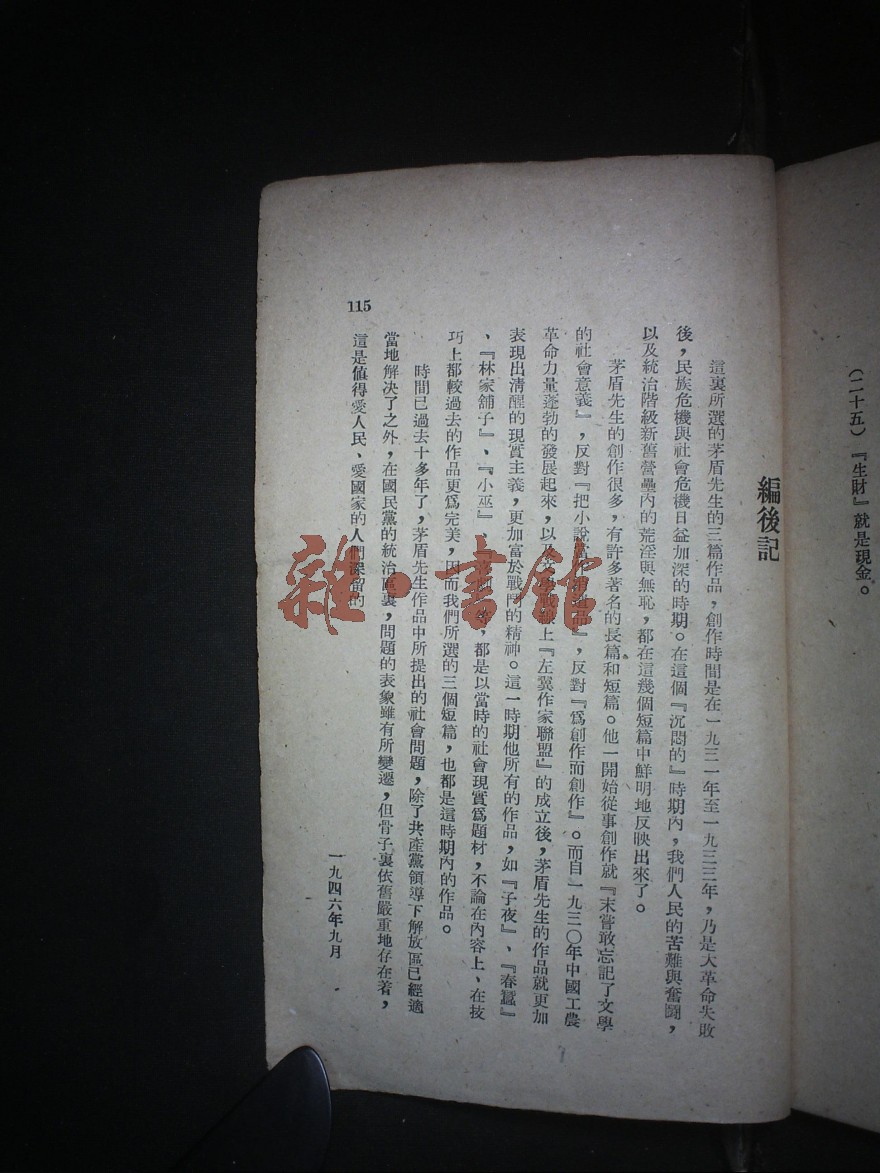 (二十五)『生財』就是現金。
編後記
這裏所選的茅盾先生的三篇作品，創作時間是在一九三一年至一九三三年，乃是大革命失敗
後，民族危機與社會危機日益加深的時期。在這個『沉悶的』時期內，我們人民的苦難與奮鬪，
以及統治階級新舊營壘內的荒淫與無恥，都在這幾個短篇中鮮明地反映出來了。
茅盾先生的創作很多，有許多著名的長篇和短篇。他一開始從事創作就『未嘗敢忘記了文學
的社會意義』，反對『把小說當作消遣品』，反對『爲創作而創作』。而自一九三〇年中國工農
革命力量蓬勃的發展起來，以及戰線上『左翼作家聯盟』的成立後，茅盾先生的作品就更加
表現出清醒的現實主義，更加富於戰鬥的精神。這一時期他所有的作品，如『子夜』、『春蠶』
、『林家舖子』、『小巫』等，都是以當時的社會現實爲題材，不論在內容上、在技
巧上都較過去的作品更爲完美，因而我們所選的三個短篇，也都是這時期內的作品。
時間已過去十多年了，茅盾先生作品中所提出的社會問題，除了共產黨領導下解放區已經適
當地解决了之外，在國民黨的統治區裏，問題的表象雖有所變遷，但骨子裏依舊嚴重地存在着，
這是值得愛人民、愛國家的人們深留的
一九四六年九月
115
雜·書館